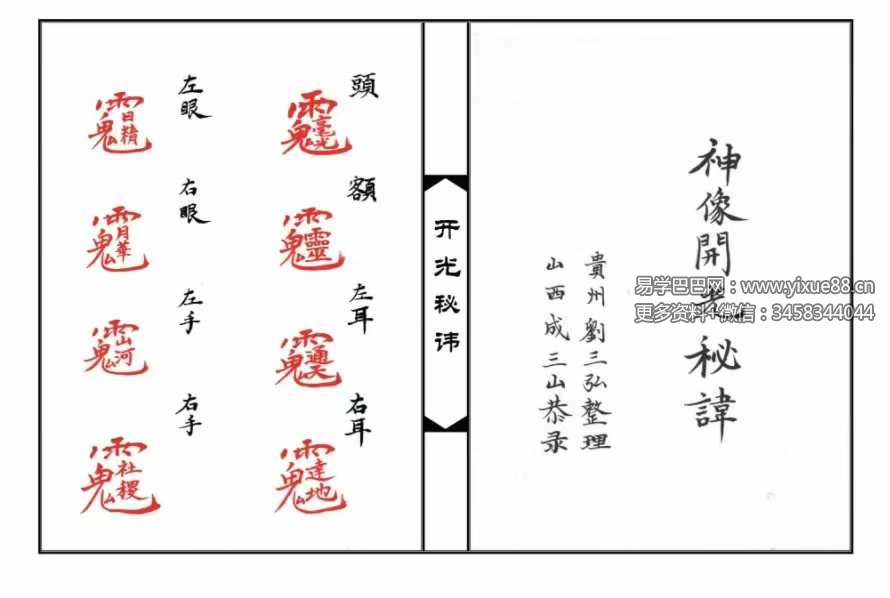 神像開光秘諱
貴州劉三弘整理
山西成三山恭录
开光秘讳
頭
毫光
額
靈
左耳
通天
右耳
達地
左眼
日精
右眼
月華
左手
山河
右手
社稷
易学巴巴网：www.yixue88.cn
更多资料+微信：3458344044